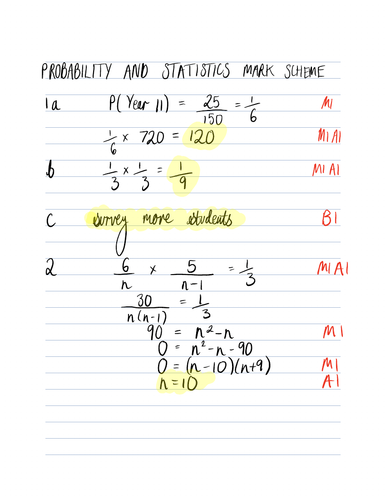 PROBABILITY AND STATISTICS MARK SCHEME
1a P(Year 11) = 25/150 = 1/6 M1
1/6 × 720 = 120 M1 A1
b 1/3 × 1/3 = 1/9 M1 A1
c survey more students B1
2 6/n × 5/n-1 = 1/3 M1 A1
30/n(n-1) = 1/3
90 = n²-n M1
0 = n²-n-90
0 = (n-10)(n+9) M1
n=10 A1